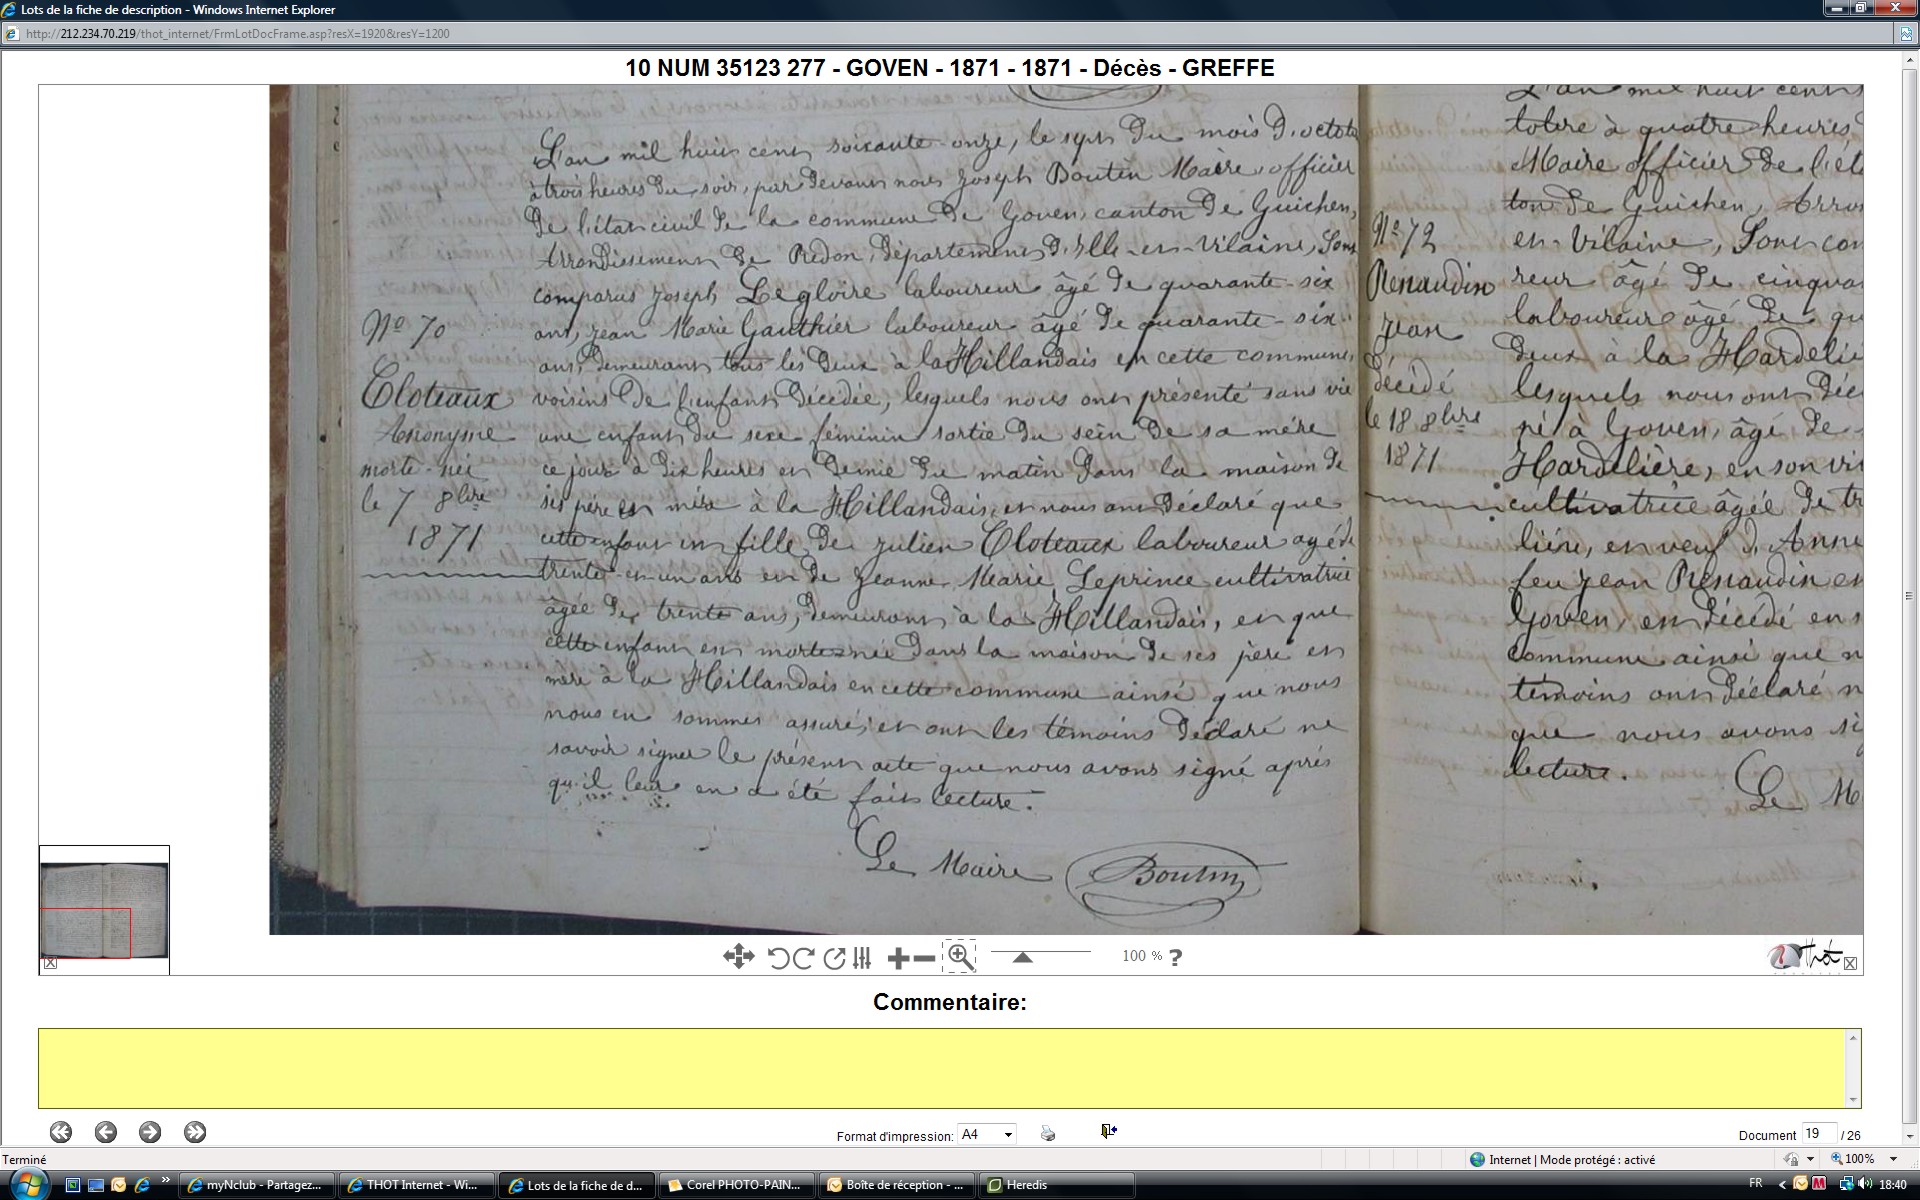 Lots de la fiche de description - Windows Internet Explorer
http://212.234.70.219/thot_internet/FrmLotDocFrame.asp?resX=1920&resY=1200
10 NUM 35123 277 - GOVEN - 1871 - 1871 - Décès - GREFFE
L'an mil huit cent soixante-onze, le sept du mois d'octob
à trois heures du soir, par devant nous Joseph Boutin Maire, officier
de l'état civil de la commune de Goven, canton de Guichen,
Arrondissement de Redon, département d'Ille-en-Vilaine, Sont
comparus Joseph Legloire laboureur âgé de quarante-six
ans, Jean Marie Gauthier laboureur âgé de quarante-six
ans, demeurant tous les deux à la Hillandais en cette commune,
voisins de l'enfant décédée, lesquels nous ont présenté sans vie
une enfant du sexe féminin sortie du sein de sa mère
ce jour à dix heures et demie du matin dans la maison de
ses père et mère à la Hillandais, et nous ont déclaré que
cette enfant est fille de Julien Cloteaux laboureur agé de
trente-et-un ans et de Jeanne Marie Leprince cultivatrice
âgée de trente ans, demeurant à la Hillandais, et que
cette enfant est morte-née dans la maison de ses père et
mère à la Hillandais en cette commune ainsi que nous
nous en sommes assuré; et ont les témoins déclaré ne
savoir signer le présent acte que nous avons signé après
qu'il leur en a été fait lecture.
Le Maire Boutin
No 70
Cloteaux
Anonyme
morte-née
le 7 8bre
1871
No 72
Renaudin
Jean
décédé
le 18 8bre
1871
L'an mil huit cent s
tobre à quatre heures
Maire officier de l'ét
ton de Guichen, Arron
en-Vilaine, Sont com
reur âgé de cinqua
laboureur âgé de qu
deux à la Hardeliè
lesquels nous ont déc
né à Goven, âgé de
Hardelière, en son vi
cultivatrice âgée de tr
lière, et veuf d'Anne
feu Jean Renaudin et
Goven, et décédé en s
commune ainsi que n
témoins ont déclaré n
que nous avons si
lecture.
Le M
Thot
100 % ?
Commentaire:
Format d'impression: A4
Document 19 / 26
Terminé
Internet | Mode protégé : activé
100%
myNclub - Partagez...
THOT Internet - Wi...
Lots de la fiche de d...
Corel PHOTO-PAIN...
Boîte de réception - ...
Heredis
FR
18:40